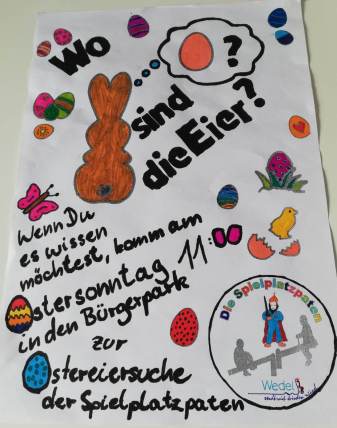 Wo
?
sind
die Eier?
Wenn Du
es wissen
möchtest, komm am
Ostersonntag 11:00
in den Bürgerpark
zur
Ostereiersuche
der Spielplatzpaten
Die Spielplatzpaten
Wedel